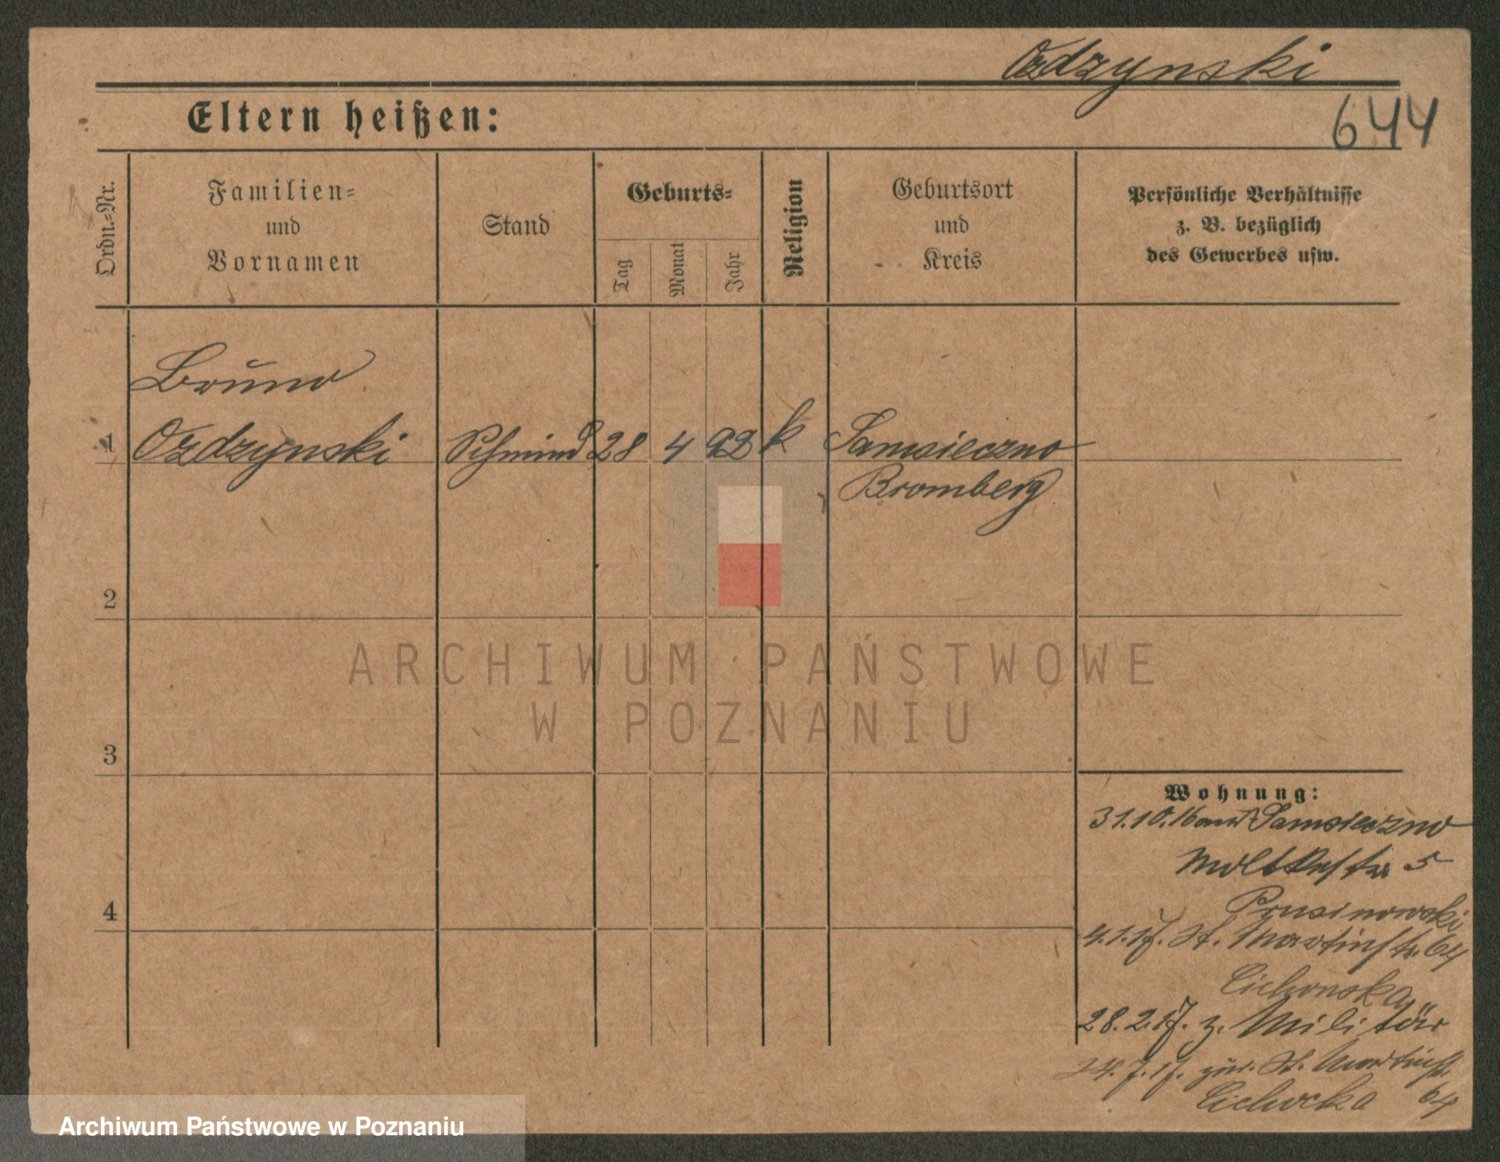 Ozdzynski
644
Eltern heißen:
Ordn.-Nr.
Familien-
und
Vornamen
Stand
Geburts-
Tag
Monat
Jahr
Religion
Geburtsort
und
Kreis
Persönliche Verhältnisse
z. B. bezüglich
des Gewerbes usw.
Bruno
1 Ozdzynski Schmied 28 4 92 k Samsieczno
Bromberg
2
ARCHIWUM PAŃSTWOWE
W POZNANIU
3
Wohnung:
31.10.16 aus Samsieczno
Moltkestr 5
Prusinowski
4
4.1.17. St. Martinstr. 64
28.2.17. z. Militär
24.7.17. zur. St. Martinstr.
64
Archiwum Państwowe w Poznaniu